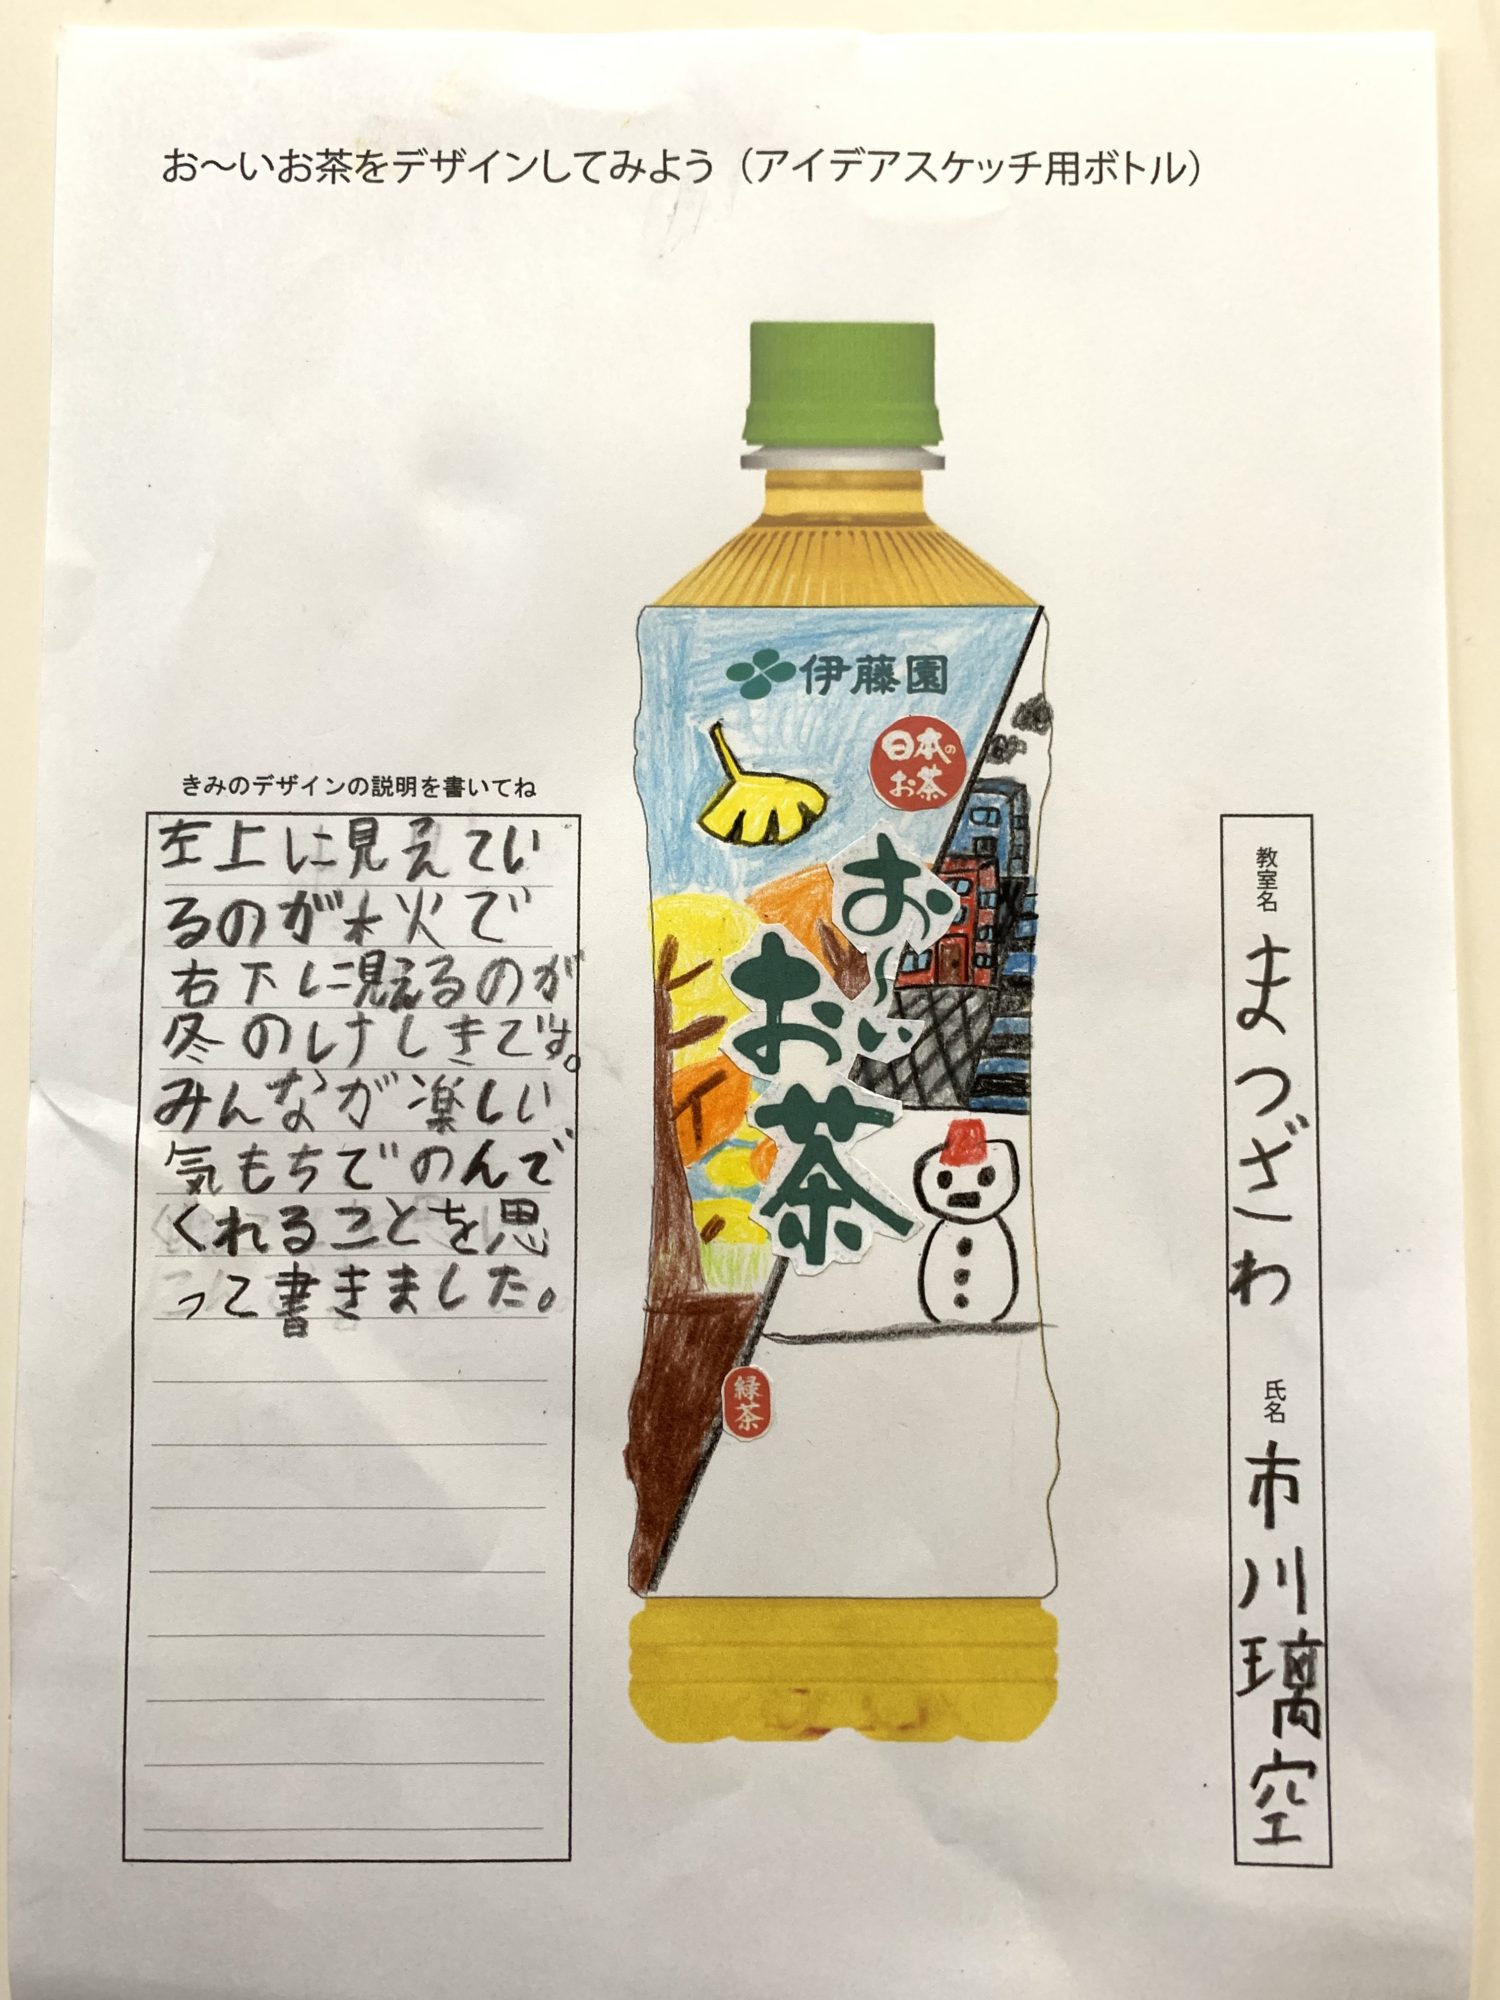 お～いお茶をデザインしてみよう（アイデアスケッチ用ボトル）
伊藤園
日本の
お茶
お～い
お茶
緑茶
きみのデザインの説明を書いてね
左上に見えてい
るのが秋で
右下に見えるのが
冬のけしきです。
みんなが楽しい
気もちでのんで
くれることを思
って書きました。
教室名 まつざわ 氏名 市川璃空